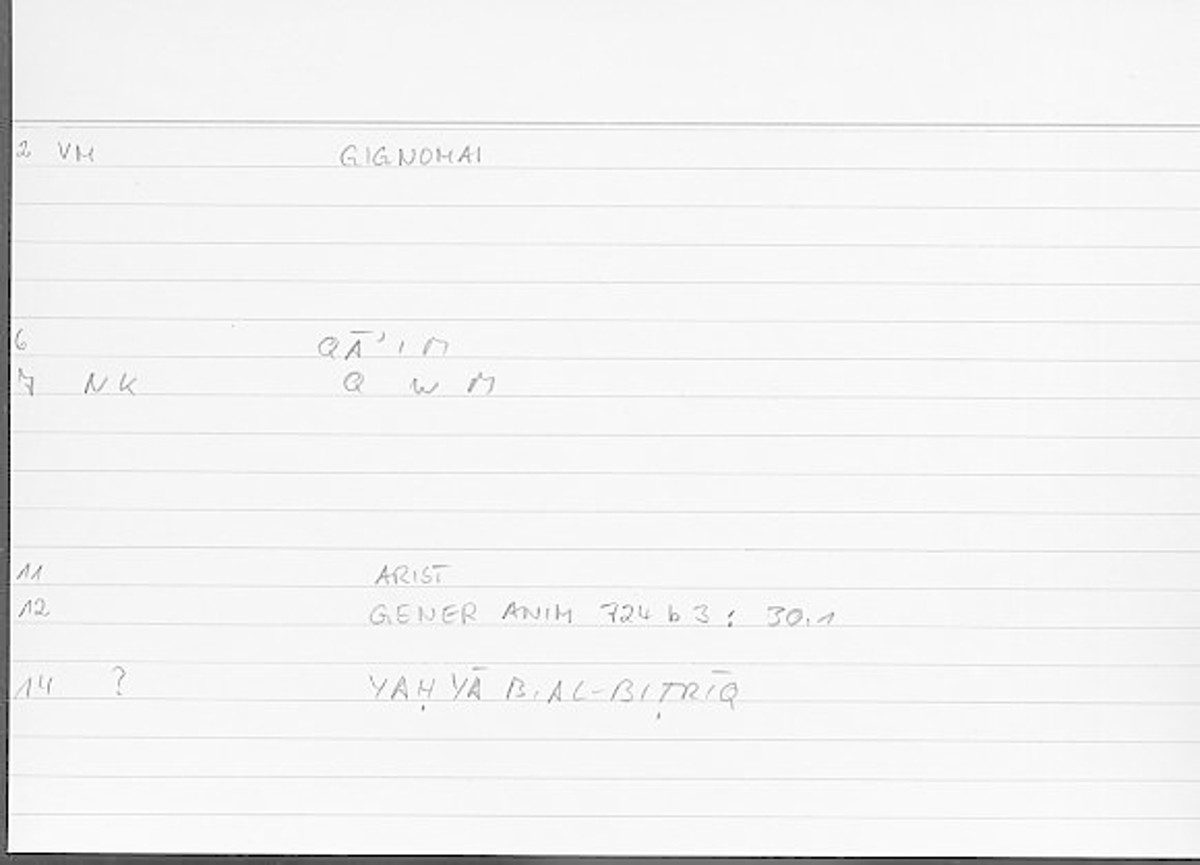 2 VM GIGNOMAI
6 QĀ'IM
7 NK Q W M
11 ARIST
12 GENER ANIM 724 b 3 : 30.1
14 ? YAḤYĀ B. AL-BIṬRĪQ